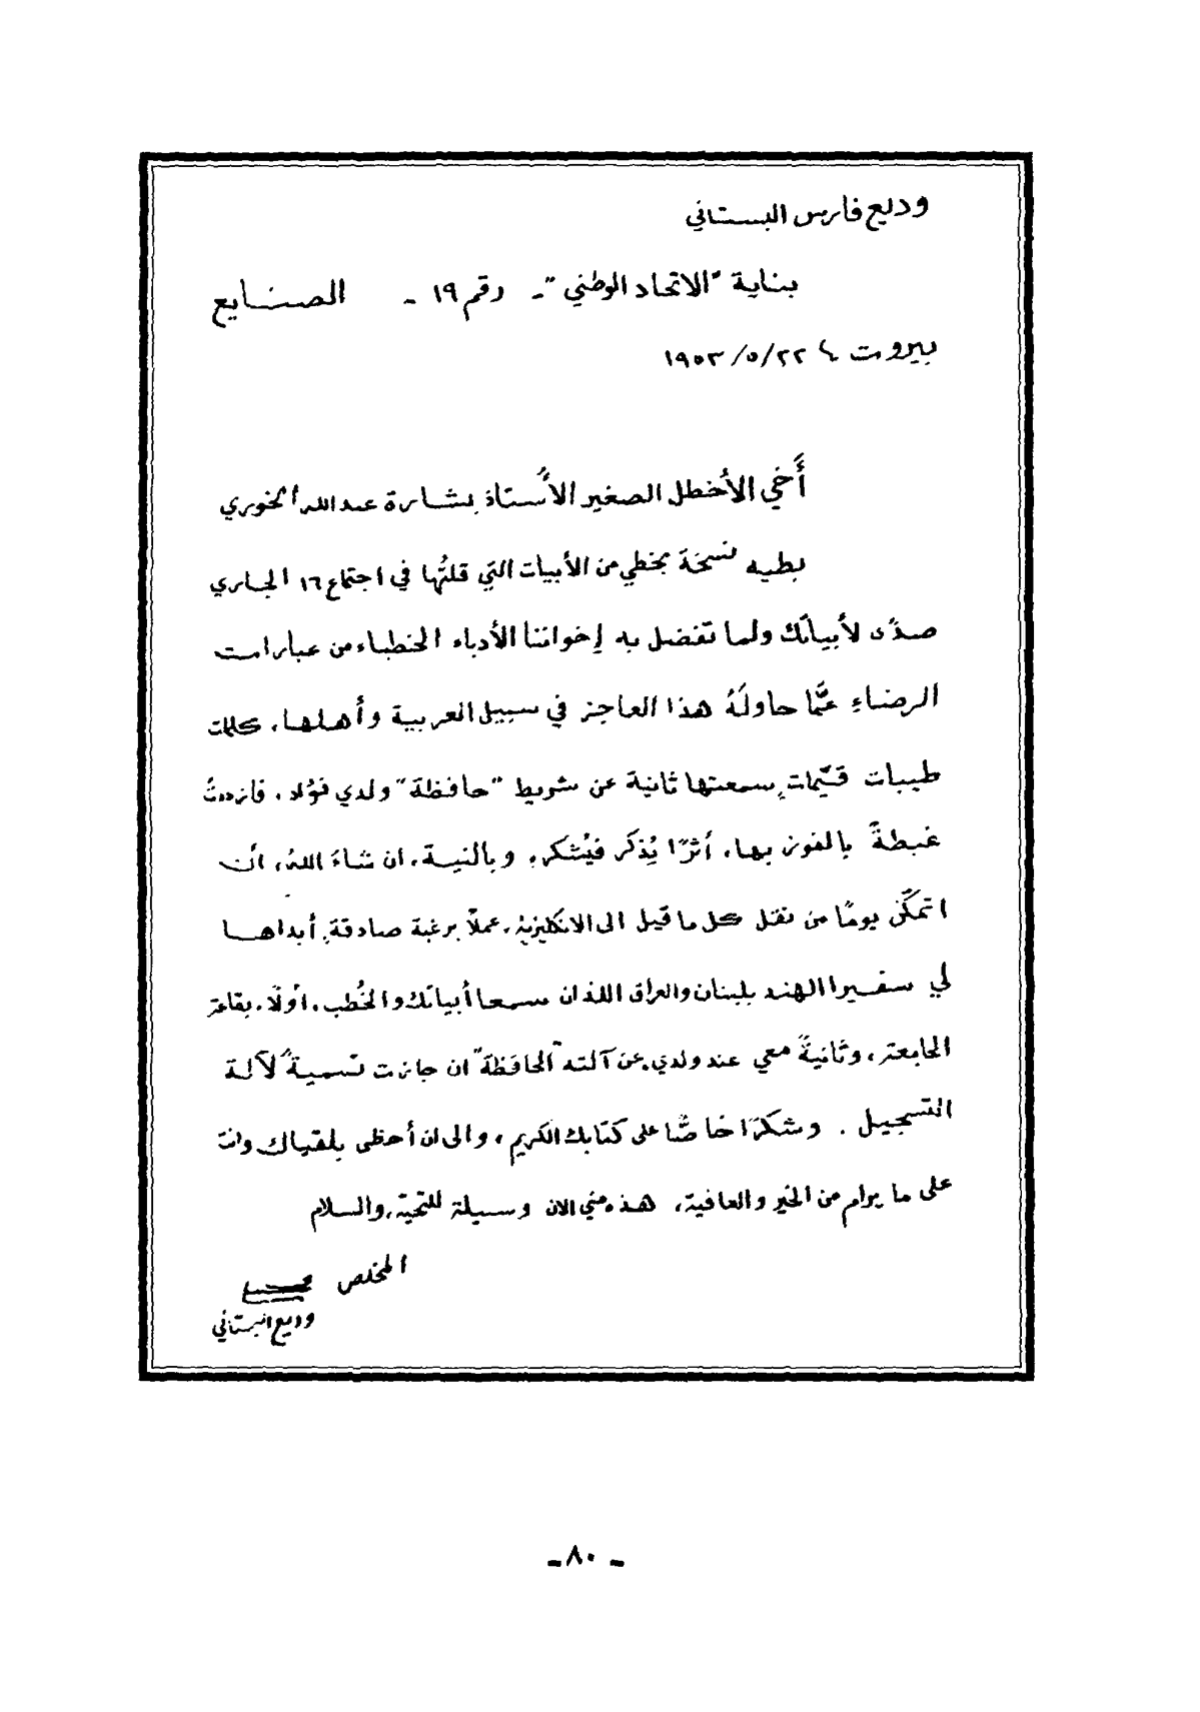 وديع فارس البستاني
بناية "الاتحاد الوطني" - رقم ١٩ - الصنايع
بيروت ٢٢/٥/١٩٥٣
أَخي الأخطل الصغير الأُستاذ بشارة عبدالله الخوري
بطيه نسخة بخطي من الأبيات التي قلتُها في اجتماع ١٦ الجاري
صدًى لأبياتك ولما تفضل به إخواننا الأدباء الخطباء من عبارات
الرضاءِ عمَّا حاولَهُ هذا العاجز في سبيل العربية وأهلها، كلمات
طيبات قيّمات سمعتها ثانية عن شريط "حافظة" ولدي فؤاد، فازددتُ
غبطةً بالفوز بها، أثرًا يُذكَر فيُشكر، وبالنية، ان شاءَ اللهُ، أن
اتمكّن يومًا من نقل كل ما قيل الى الانكليزية، عملاً برغبة صادقة، أبداها
لي سفيرا الهند بلبنان والعراق اللذان سمعا أبياتك والخُطب، أولًا، بقاعة
الجامعة، وثانيةً معي عند ولدي، عن آلته "الحافظة" ان جازت تسميةً لآلة
التسجيل . وشكرًا خاصًّا على كتابك الكريم، والى ان أحظى بلقياك وانت
على ما يرام من الخير والعافية، هذه مني الان وسيلة للتحية، والسلام
المخلص
وديع البستاني
- ٨٠ -